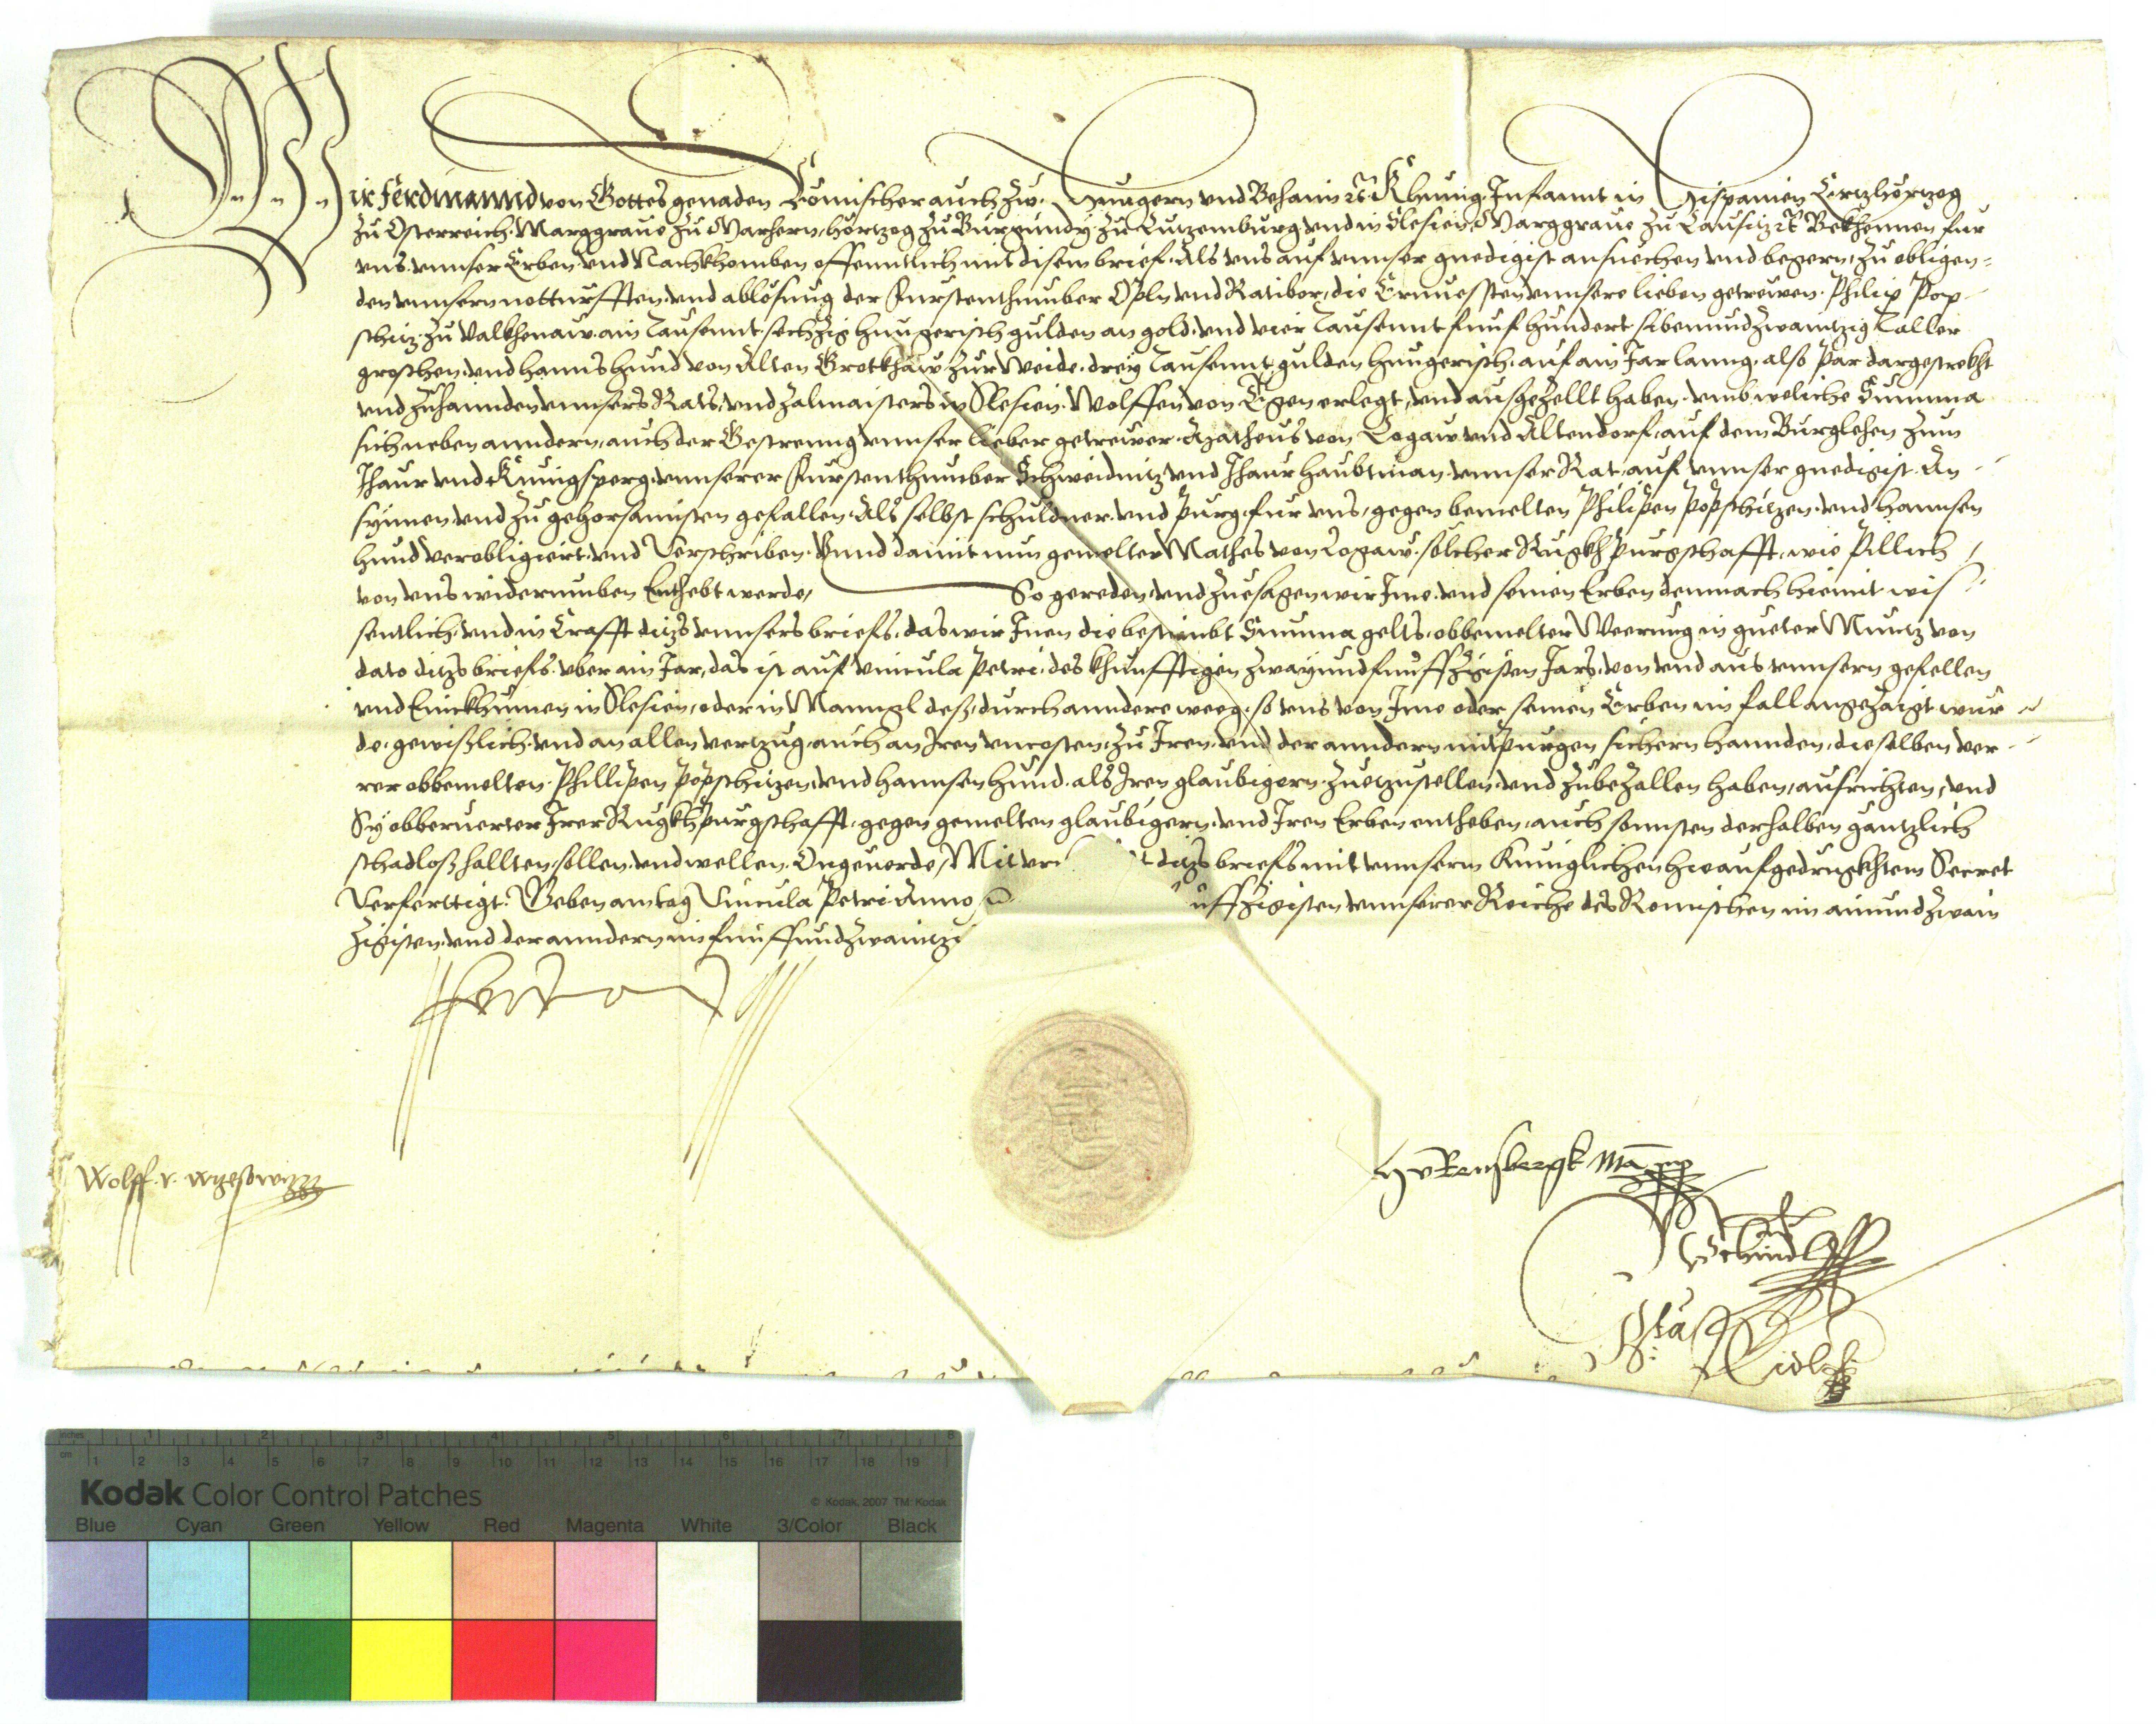 Wir Ferdinannd von Gottes genaden Römischer auch zw Hungern vnd Behaim etc. Khunig Infannt in Hispanien Ertzhertzog
zu Österreich Marggraue zu Marhern hertzog zu Burgundy zu Lutzemburg vnd in Slesien Marggraue zu Lausitz etc. Bekhennen fur
vns vnnser Erben vnd Nachkhomben offenntlich mit disem brief. Als vns auf vnnser gnedigist ansuechen vnd begern, zu obligen-
den vnnsern notturfften vnd ablösung der Furstenthumber Opln vnd Ratibor, die Ernuessten vnnsere lieben getrewen Philip Pop-
schitz zu Valkhenaw ain Tausennt sechzig hungerisch gulden an gold vnd vier Tausennt funf hundert sibenundzwaintzig Taller
groschen vnd hanns hund von Alten Grotkhaw zur Weide drey Tausennt gulden hungerisch auf ain Jar lanng also par dargestrekht
vnd zuhannden vnnsers Rats vnd zalmaisters in Slesien Wolffen von Egen erlegt, vnd ausgezellt haben vmb weliche Summa
sich neben anndern, auch der Gestrenng vnnser lieber getrewer Matheus von Logaw vnd Altendorf, auf dem Burglehen zum
Jhaur vnd Kunigsperg vnnserer Furstenthumber Schweidnitz vnd Jhaur haubtman vnnser Rat auf vnnser gnedigist An-
synnen vnd zu gehorsamisten gefallen Als selbst schuldner vnd purg fur vns, gegen bemelten Philipen Popschitzen vnd hannsen
hund verobligiert vnd Verschriben. Vnnd damit nun gemelter Mathes von Logaw solcher Rugkh purgschafft, wie pillich
von vns widerumben Enthebt werde, So gereden vnd zuesagen wir Ime vnd seinen Erben demnach hiemit wis-
sentlich vnd in Crafft ditzs vnnsers briefs, das wir Inen die bestimbt Summa gelts obbemelter Weerung in gueter Muntz von
dato ditzs briefs vber ain Jar, das ist auf vincula Petri des khunfftigen zwayundfunffzigisten Jars, von vnd aus vnnsern gefellen
vnd Einkhumen in Slesien, oder in Manngl deß, durch anndere weeg, so vns von Ime oder seinen Erben im fall angezaigt wur-
de, gewißlich vnd an allen vertzug, auch an Iren vncosten, zu Iren vnd der anndern mitpurgen sichern hannden, dieselben ver-
rer obbemelten Phillipen Popschitzen vnd hannsen hund als Iren glaubigern zuetzustellen vnd zubezallen haben, aufrichten, vnd
Sy obberuerter Irer Rugkhpurgschafft, gegen gemelten glaubigern vnd Iren Erben entheben, auch sonnsten derhalben gäntzlich
schadloß hallten sollen vnd wellen Ongeuerde, Mit vr t ditzs briefs mit vnnserm Kuniglichen hieaufgedrugkhtem Secret
Verferttigt. Geben am tag Vincula Petri Anno uffzigisten vnnserer Reiche des Romischen im ainundzwain
zigisten vnd der anndern im funffundzwaintzi
Ferdinand
Wolff v. wrzesowitz
H v Rensbergk Ma pp